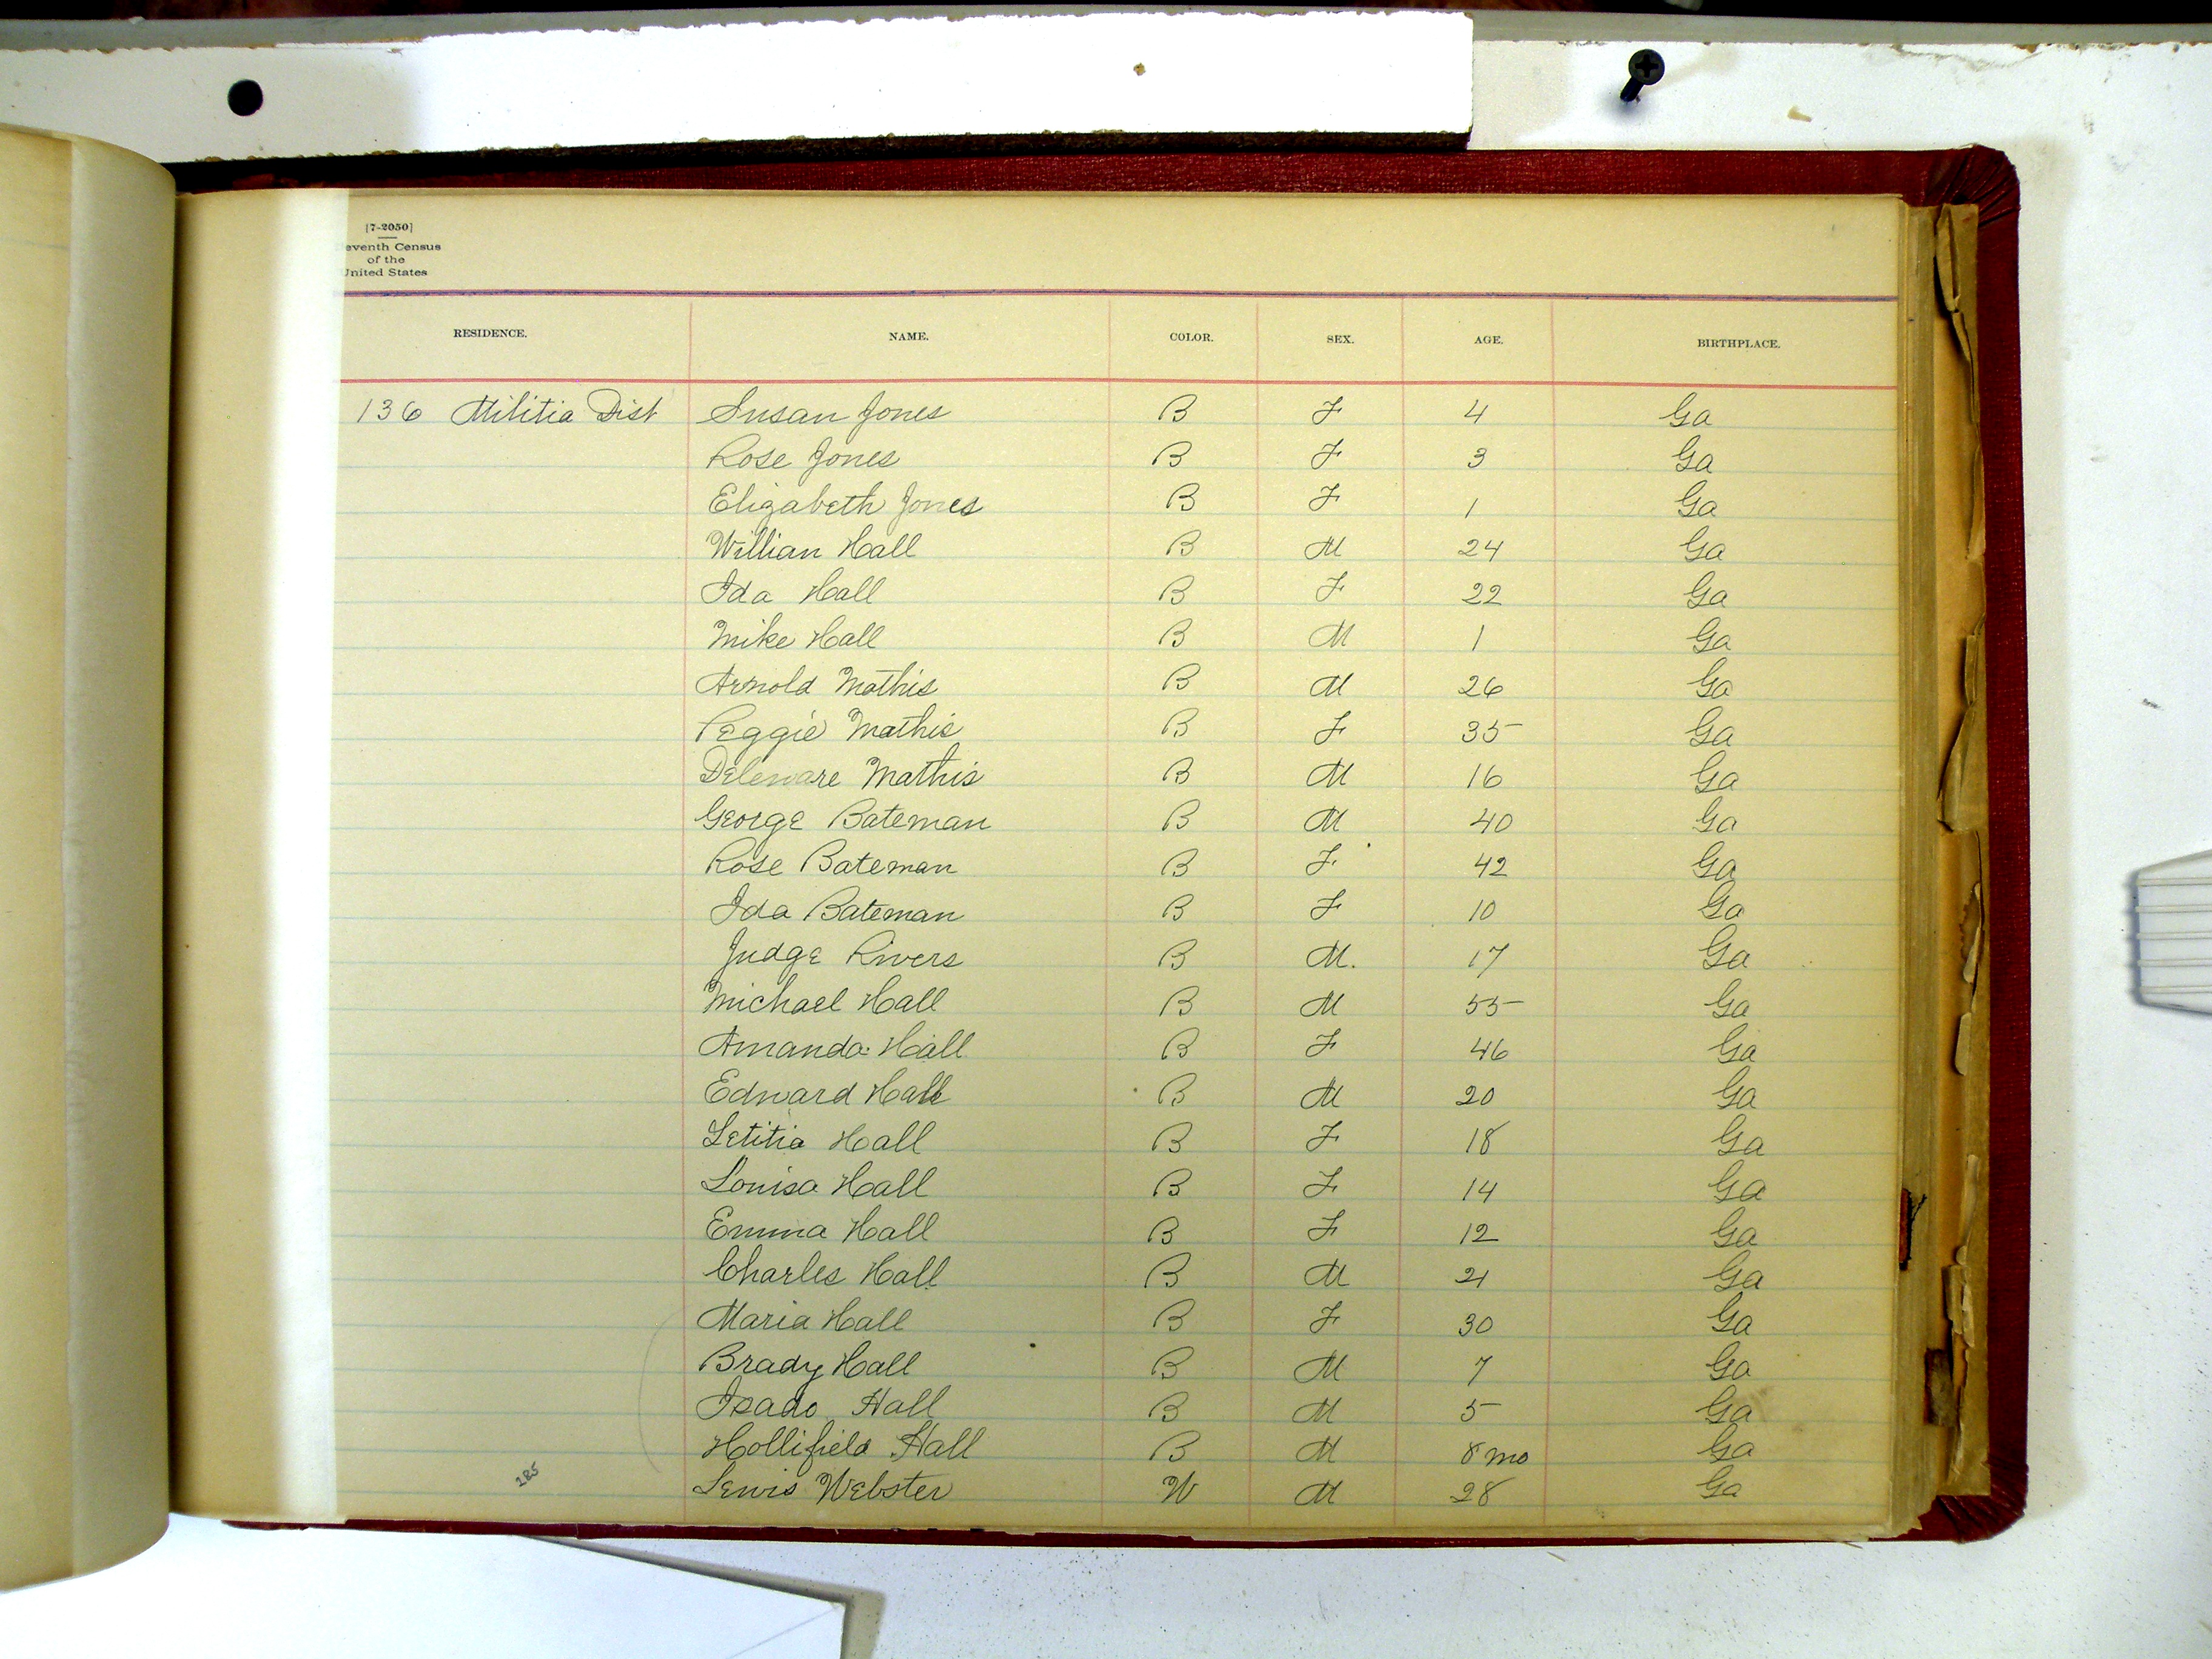 [7-2050]
eventh Census
of the
United States
RESIDENCE. NAME. COLOR. SEX. AGE. BIRTHPLACE.
136 Militia Dist Susan Jones B F 4 Ga
Rose Jones B F 3 Ga
Elizabeth Jones B F 1 Ga
Willian Hall B M 24 Ga
Ida Hall B F 22 Ga
Mike Hall B M 1 Ga
Arnold Mathis B M 26 Ga
Peggie Mathis B F 35 Ga
Deleware Mathis B M 16 Ga
George Bateman B M 40 Ga
Rose Bateman B F 42 Ga
Ida Bateman B F 10 Ga
Judge Rivers B M. 17 Ga
Michael Hall B M 55 Ga
Amanda Hall B F 46 Ga
Edward Hall B M 20 Ga
Letitia Hall B F 18 Ga
Louisa Hall B F 14 Ga
Emma Hall B F 12 Ga
Charles Hall B M 21 Ga
Maria Hall B F 30 Ga
Brady Hall B M 7 Ga
Hall B M 5 Ga
Hollifield Hall B M 8 mo Ga
Lewis Webster W M 28 Ga
285